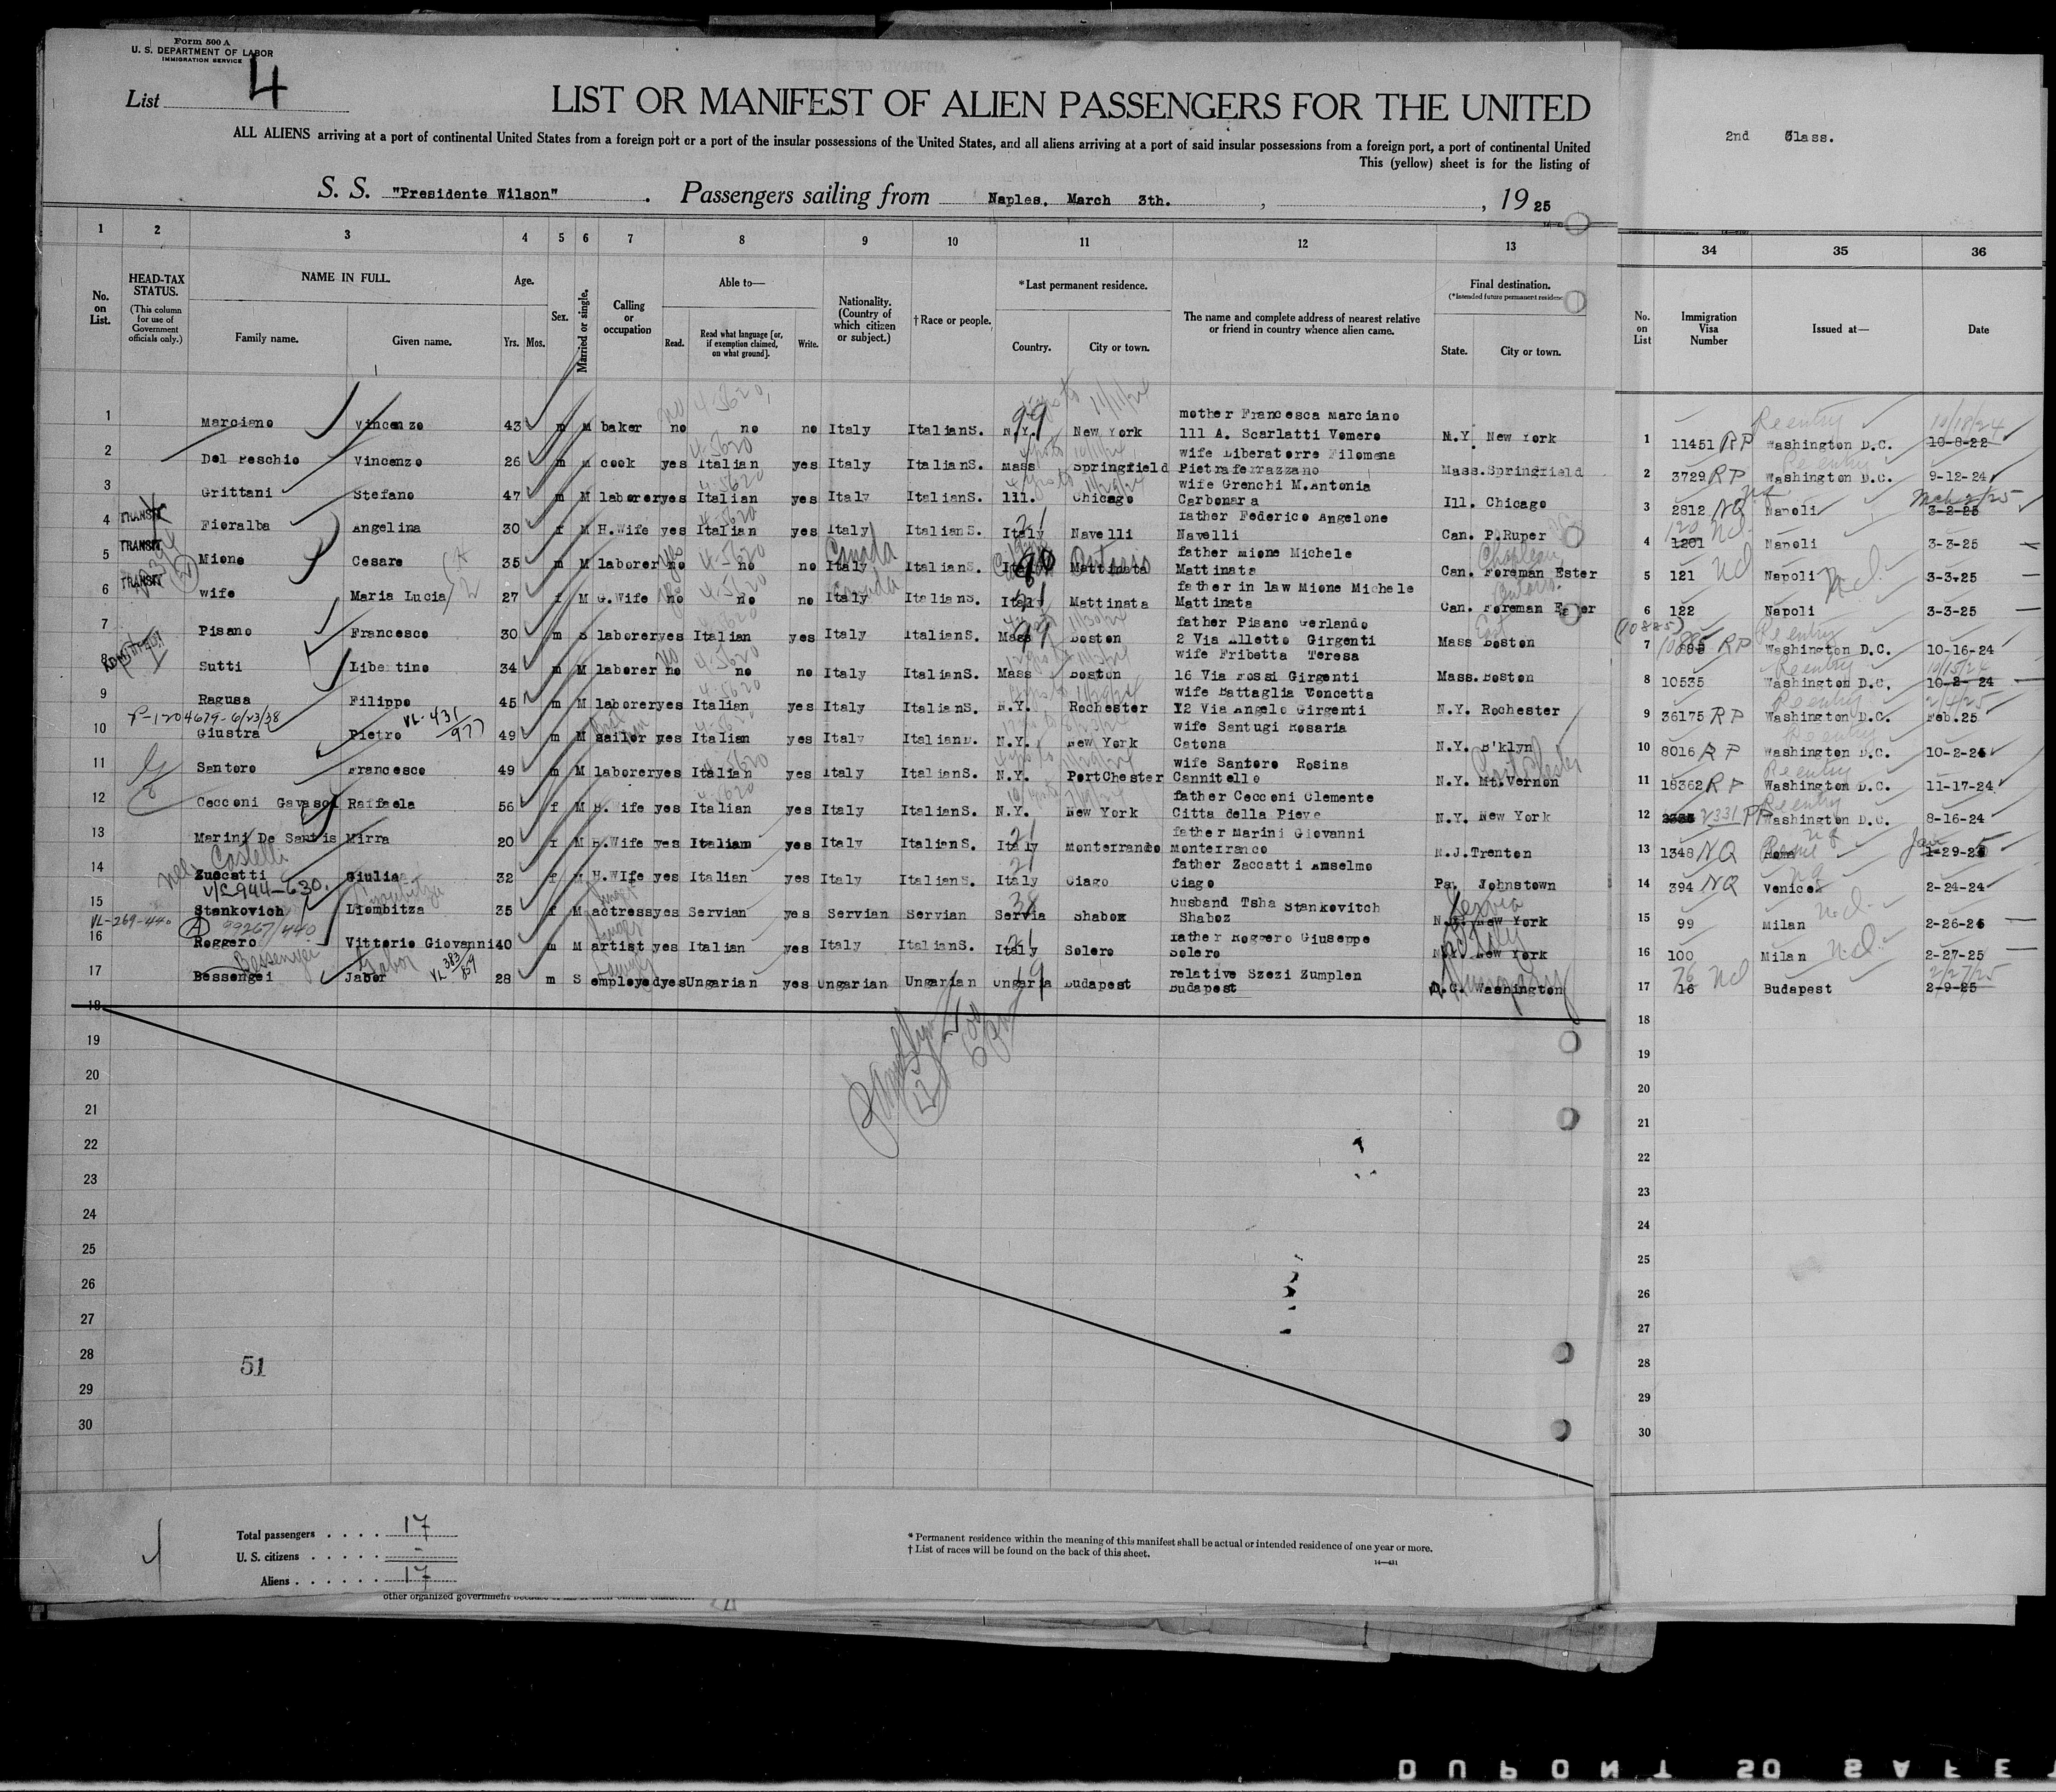 Form 500 A
U. S. DEPARTMENT OF LABOR
IMMIGRATION SERVICE
List 4
LIST OR MANIFEST OF ALIEN PASSENGERS FOR THE UNITED
ALL ALIENS arriving at a port of continental United States from a foreign port or a port of the insular possessions of the United States, and all aliens arriving at a port of said insular possessions from a foreign port, a port of continental United
This (yellow) sheet is for the listing of
2nd Class.
S. S. "Presidente Wilson" . Passengers sailing from Naples, March 3th. , , 1925
1 2 3 4 5 6 7 8 9 10 11 12 13 34 35 36
No. on List.
HEAD-TAX STATUS.
(This column for use of Government officials only.)
NAME IN FULL.
Family name. Given name.
Age.
Yrs. Mos.
Sex.
Married or single.
Calling or occupation
Able to—
Read. Read what language [or, if exemption claimed, on what ground]. Write.
Nationality. (Country of which citizen or subject.)
†Race or people.
*Last permanent residence.
Country. City or town.
The name and complete address of nearest relative or friend in country whence alien came.
Final destination.
(*Intended future permanent residence)
State. City or town.
No. on List
Immigration Visa Number
Issued at—
Date
1 Marciano Vincenzo 43 m M baker no no no Italy ItalianS. N.Y. New York mother Francesca Marciano 111 A. Scarlatti Vomero N.Y New York 1 11451 RP Reentry Washington D.C. 10/18/24 10-8-22
2 Del Peschio Vincenzo 26 m M cook yes Italian yes Italy ItalianS. Mass Springfield wife Liberatorre Filomena Pietraferrazzano Mass. Springfield 2 3729 RP Reentry Washington D.C. 9-12-24
3 Grittani Stefano 47 m M laborer yes Italian yes Italy ItalianS. Ill. Chicago wife Grenchi M.Antonia Carbonara Ill. Chicago 3 2812 NQ Napoli 3-2-25
4 TRANSIT Fioralba Angelina 30 f M H.Wife yes Italian yes Italy ItalianS. Italy Navelli father Federico Angelone Navelli Can. P.Ruper 4 1201 120 Napoli 3-3-25
5 TRANSIT Mione Cesare 35 m M laborer no no no Italy Canada ItalianS. Italy Mattinata father Mione Michele Mattinata Can. Foreman Ester 5 121 Napoli 3-3-25
6 TRANSIT wife Maria Lucia 27 f M G.Wife no no no Italy Canada ItalianS. Italy Mattinata father in law Mione Michele Mattinata Can. Foreman Ester 6 122 Napoli 3-3-25
7 Pisano Francesco 30 m S laborer yes Italian yes Italy ItalianS. Mass Boston father Pisano Gerlando 2 Via Alletto Girgenti Mass Boston (10885) 7 RP Reentry Washington D.C. 10-16-24
8 Sutti Libertino 34 m M laborer no no no Italy ItalianS. Mass Boston wife Fribetta Teresa 16 Via Rossi Girgenti Mass. Boston 8 10535 Reentry Washington D.C. 10/15/24 10-2-24
9 Ragusa Filippo 45 m M laborer yes Italian yes Italy ItalianS. N.Y. Rochester wife Battaglia Concetta 12 Via Angelo Girgenti N.Y. Rochester 9 36175 RP Reentry Washington D.C. Feb.25
P-1204679-6/23/38 VL-431/977
10 Giustra Pietro 49 m M sailor yes Italian yes Italy ItalianS. N.Y. New York wife Santugi Rosaria Catona N.Y. B'klyn 10 8016 RP Reentry Washington D.C. 10-2-24
11 Santoro Francesco 49 m M laborer yes Italian yes Italy ItalianS. N.Y. PortChester wife Santoro Rosina Cannitello N.Y. Mt.Vernon 11 18362 RP Reentry Washington D.C. 11-17-24
12 Cecconi Gavasci Raffaela 56 f M H.Wife yes Italian yes Italy ItalianS. N.Y. New York father Cecconi Clemente Citta della Pieve N.Y. New York 12 2331 RP Reentry Washington D.C. 8-16-24
13 Marini De Santis Mirra 20 f M H.Wife yes Italian yes Italy ItalianS. Italy Monterrando father Marini Giovanni Monterranco N.J. Trenton 13 1348 NQ Rome 1-29-25
nee Costelli
14 Zuccatti Giulia 32 f M H.WIfe yes Italian yes Italy ItalianS. Italy Ciago father Zaccatti Anselmo Ciago Pa. Johnstown 14 394 NQ Venice 2-24-24
V/C 944-630.
15 Stankovich Liombitza 35 f M actress yes Servian yes Servian Servian Servia Shabox husband Tsha Stankovitch Shaboz N.Y. New York Servia 15 99 Milan 2-26-25
VL-269-440 (A) 99267/440
16 Roggero Vittorio Giovanni 40 m M artist yes Italian yes Italy ItalianS. Italy Solero father Roggero Giuseppe Solero N.Y. New York Italy 16 100 Milan 2-27-25
Bessenyei Gabor VL 383/859
17 Bessengei Jabor 28 m S employed yes Ungarian yes Ungarian Ungarian Ungaria Budapest relative Szezi Zumplen Budapest D.C. Washington 17 16 76 Budapest 2/27/25 2-9-25
18 18
19 19
20 20
21 21
22 22
23 23
24 24
25 25
26 26
27 27
28 28
29 29
30 30
51
Total passengers . . . . 17
U. S. citizens . . . . . -
Aliens . . . . . . 17
* Permanent residence within the meaning of this manifest shall be actual or intended residence of one year or more.
† List of races will be found on the back of this sheet.
14—431
other organized government
DUPONT SO SAFE